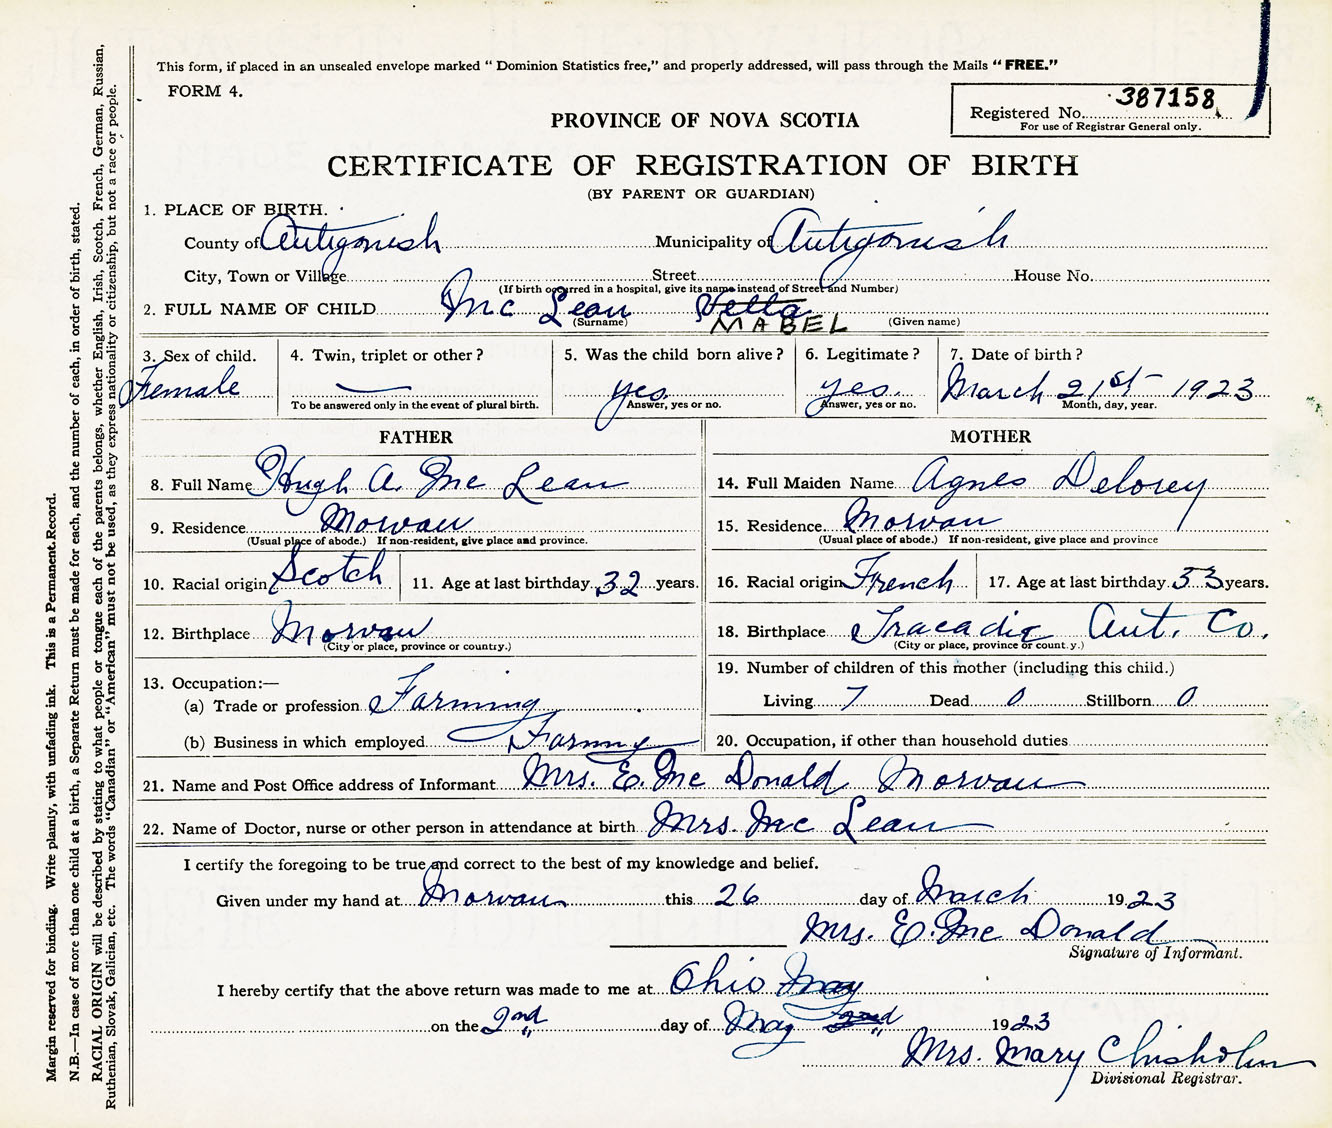 This form, if placed in an unsealed envelope marked " Dominion Statistics free," and properly addressed, will pass through the Mails " FREE."
FORM 4.
Registered No. 387158
For use of Registrar General only.
PROVINCE OF NOVA SCOTIA
CERTIFICATE OF REGISTRATION OF BIRTH
(BY PARENT OR GUARDIAN)
1. PLACE OF BIRTH.
County of Antigonish Municipality of Antigonish
City, Town or Village Street House No.
(If birth occurred in a hospital, give its name instead of Street and Number)
2. FULL NAME OF CHILD Mc Lean Vella
MABEL
(Surname) (Given name)
3. Sex of child. 4. Twin, triplet or other ? 5. Was the child born alive ? 6. Legitimate ? 7. Date of birth ?
Female — yes yes. March 21st 1923
To be answered only in the event of plural birth. Answer, yes or no. Answer, yes or no. Month, day, year.
FATHER
8. Full Name Hugh A. Mc Lean
9. Residence Morvan
(Usual place of abode.) If non-resident, give place and province.
10. Racial origin Scotch 11. Age at last birthday 32 years.
12. Birthplace Morvan
(City or place, province or country.)
13. Occupation:—
(a) Trade or profession Farming
(b) Business in which employed Farmng
MOTHER
14. Full Maiden Name Agnes Delorey
15. Residence Morvan
(Usual place of abode.) If non-resident, give place and province
16. Racial origin French 17. Age at last birthday 33 years.
18. Birthplace Tracadie Ant. Co.
(City or place, province or country.)
19. Number of children of this mother (including this child.)
Living 7 Dead 0 Stillborn 0
20. Occupation, if other than household duties
21. Name and Post Office address of Informant Mrs. E. Mc Donald Morvan
22. Name of Doctor, nurse or other person in attendance at birth Mrs. Mc Lean
I certify the foregoing to be true and correct to the best of my knowledge and belief.
Given under my hand at Morvan this 26 day of March 1923
Mrs. E. Mc Donald
Signature of Informant.
I hereby certify that the above return was made to me at Ohio May
on the 2nd day of May 2nd 1923
Mrs. Mary Chisholm
Divisional Registrar.
Margin reserved for binding. Write plainly, with unfading ink. This is a Permanent Record.
N.B.—In case of more than one child at a birth, a Separate Return must be made for each, and the number of each, in order of birth, stated.
RACIAL ORIGIN will be described by stating to what people or tongue each of the parents belongs, whether English, Irish, Scotch, French, German, Russian,
Ruthenian, Slovak, Galician, etc. The words "Canadian" or "American" must not be used, as they express nationality or citizenship, but not a race or people.